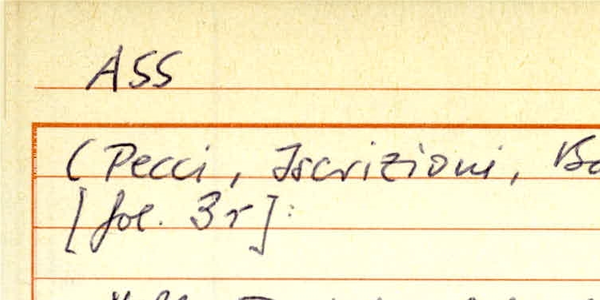 ASS
(Pecci, Iscrizioni,
[fol. 3r]: